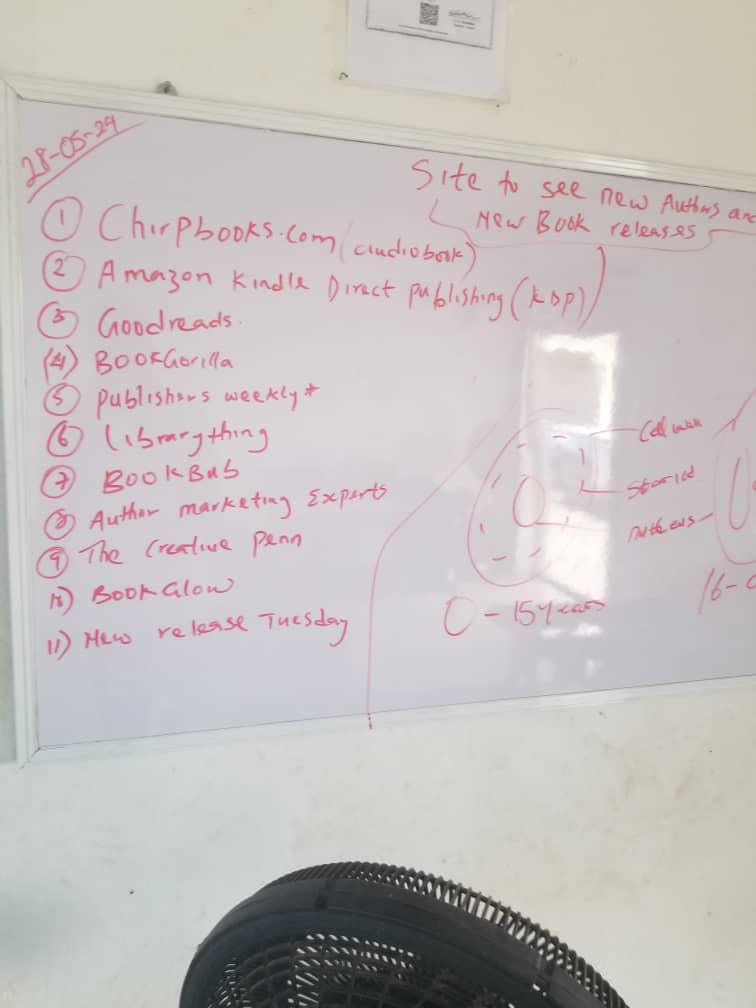 28-05-24
Site to see new Authors and
New Book releases
① Chirpbooks.com (audiobook)
② Amazon Kindle Direct publishing (KDP)
③ Goodreads.
(4) BookGorilla
⑤ publishers weekly*
⑥ librarything
⑦ BookBub
⑧ Author marketing Experts
⑨ The Creative Penn
10) BookGlow
11) New release Tuesday
Cell wall
nucleus
0-15 years
16-